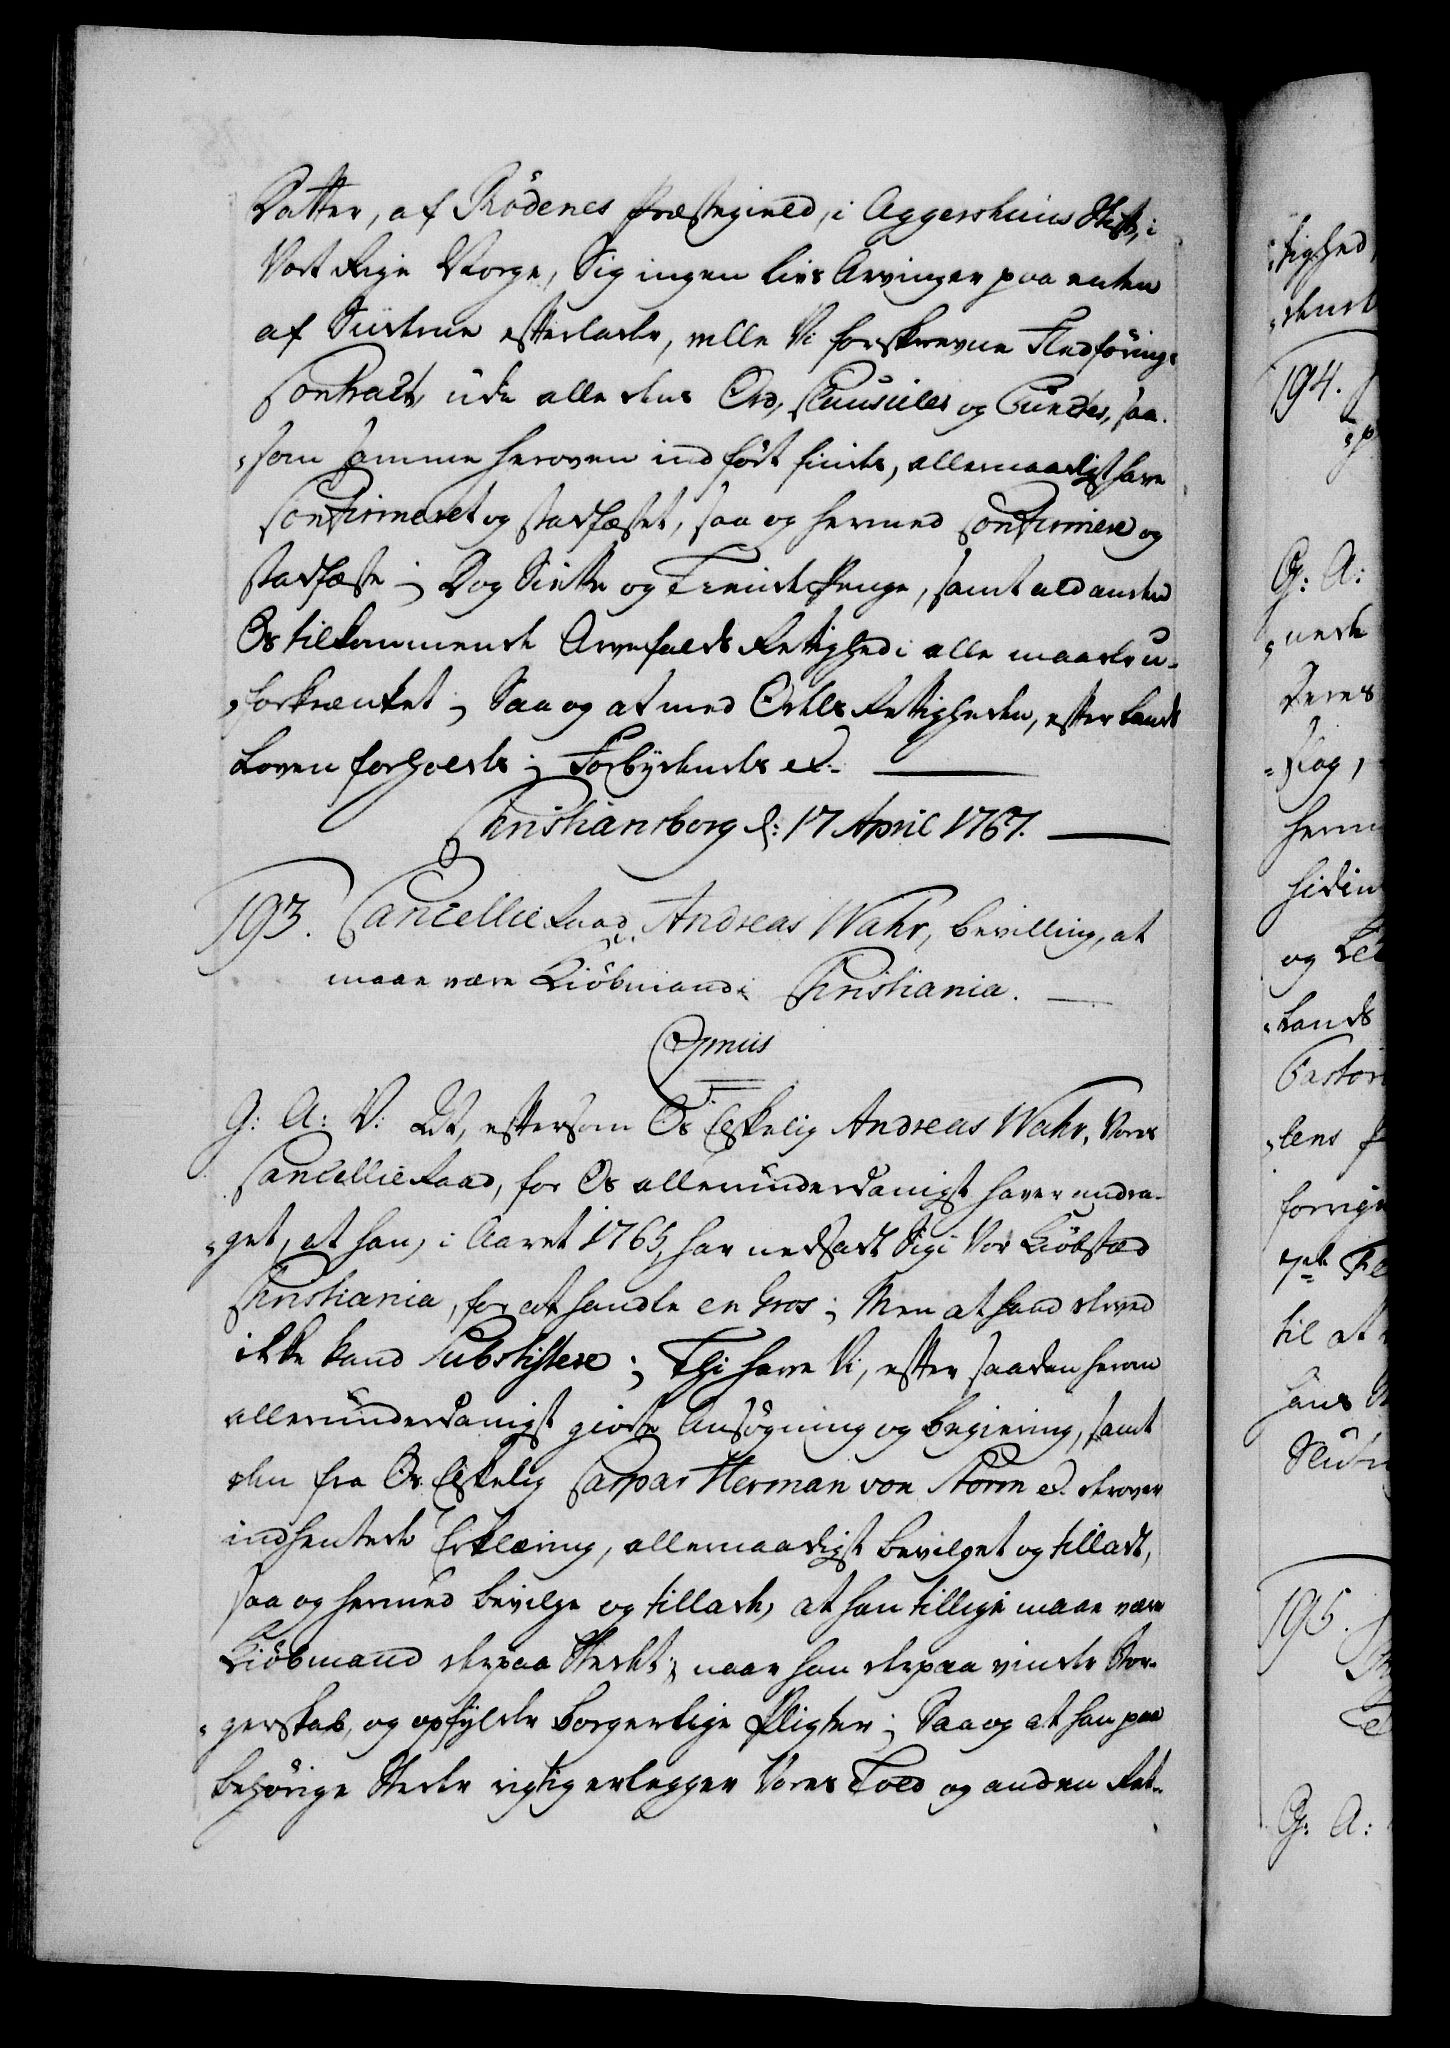 Datter, af Rödenes Præstegield, i Aggershuus Stift, i
Vort Rige Norge, Sig ingen Livs Arvinger paa enten
af Siiderne efterlade, ville Vi forskrevne Fledförings
Contract, udi alle dens Ord, Clausuler og Puncter, saa-
som samme heroven indfört findes, allernaadigst have
Confirmeret og stadfæstet, saa og hermed Confirmere og
stadfæste; Dog Siette og Tiende Penge, samt ald anden
Os tilkommende Arvefalds Rettighed i alle maader u-
forkrænket; Saa og at med Odels Rettigheden, efter Lands
Loven forholdes; Forbydendes etc.
Christiansborg d: 17 April 1767.
193. Cancellie Raad Andreas Wahr, Bevilling, at
maae være Kiöbmand i Christiania.
Gratis
G: A: V: At, eftersom Os Elskelig Andreas Wahr, Vores
Cancellie Raad, for Os allerunderdanigst haver andra-
get, at han, i Aaret 1765, har nedsadt Sig i Vor Kiöbstæd
Christiania, for at handle en Gros; Men at hand derved
ikke kand Subsistere; Thi have Vi, efter saadan herom
allerunderdanigst giorte Ansögning og begiering, samt
den fra Os Elskelig Caspar Herman von Storm etc. derover
indhentede Erklæring, allernaadigst bevilget og tilladt,
saa og hermed bevilge og tillade, at han tillige maae være
Kiöbmand derpaa Stedet; naar han derpaa vinder Bor-
gerskab, og opfylder borgerlige Pligter; Saa og at han paa
behörige Steder rigtig erlegger Vores Told og anden Ret-
tighed
194.
G: A:
Deres
og
Lands
til at
195.
G: A: